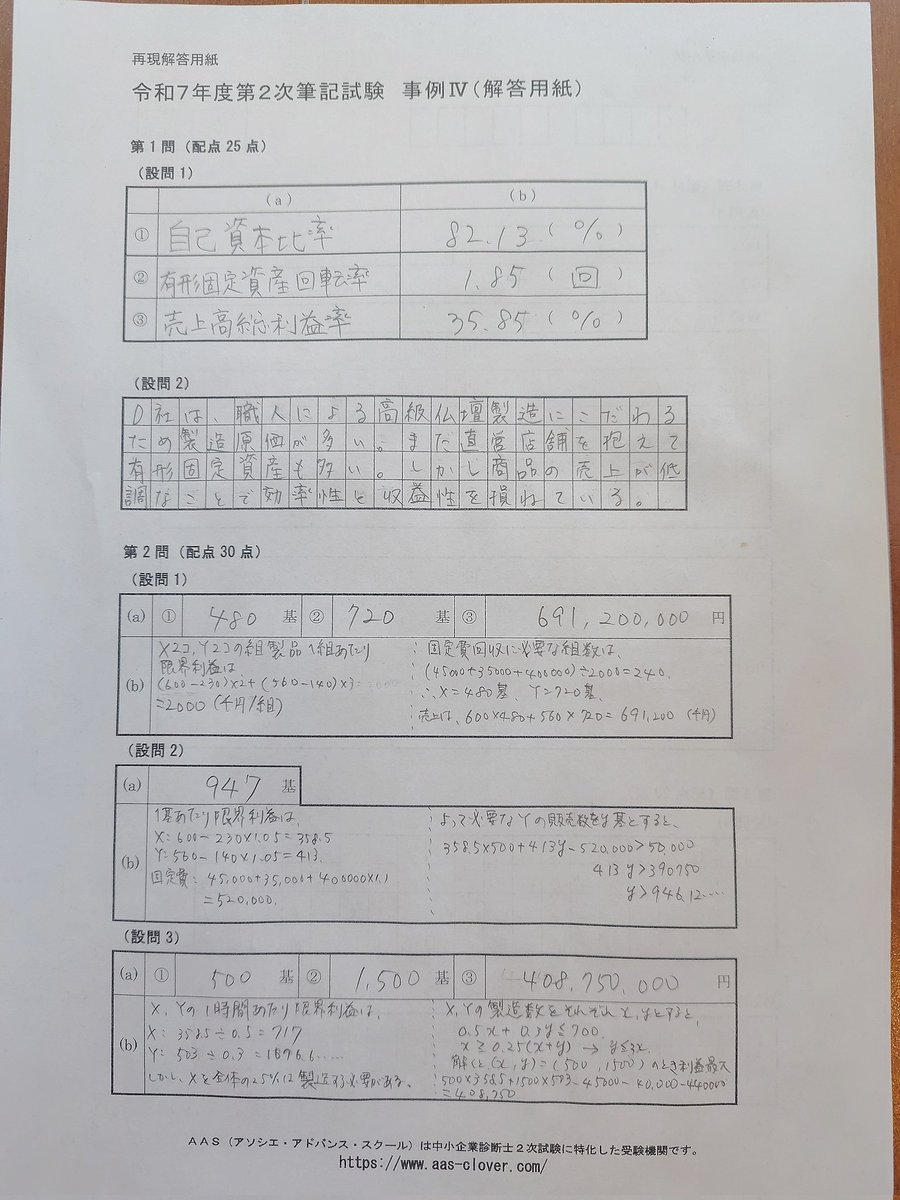 再現解答用紙
令和7年度第2次筆記試験 事例Ⅳ(解答用紙)
第1問(配点25点)
(設問1)
(a) (b)
① 自己資本比率 82.13(%)
② 有形固定資産回転率 1.85(回)
③ 売上高総利益率 35.85(%)
(設問2)
D社は、職人による高級仏壇製造にこだわる
ため製造原価が多い。また直営店舗を抱えて
有形固定資産も多い。しかし商品の売上が低
調なことで効率性と収益性を損ねている。
第2問(配点30点)
(設問1)
(a) ① 480 基 ② 720 基 ③ 691,200,000 円
(b)
X2コ,Y2コの組製品1組あたり
限界利益は
(600-230)×2+(560-140)×3
=2000(千円/組)
固定費回収に必要な組数は、
(45000+35000+400000)÷2000=240.
∴X=480基 Y=720基.
売上は、600×480+560×720=691,200(千円)
(設問2)
(a) 947 基
(b)
1基あたり限界利益は、
X:600-230×1.05=358.5
Y:560-140×1.05=413.
固定費:45,000+35,000+400000×1.1
=520,000.
よって必要なYの販売数をy基とすると、
358.5×500+413y-520,000>50,000
413y>390750
y>946.12....
(設問3)
(a) ① 500 基 ② 1,500 基 ③ 408,750,000 円
(b)
X,Yの1時間あたり限界利益は、
X:358.5÷0.5=717
Y:503÷0.3=1676.6......
しかし、Xを全体の25%は製造する必要がある。
X,Yの製造数をそれぞれx,yとすると,
0.5x+0.3y≦700.
x≧0.25(x+y)→y≦3x.
解くと(x,y)=(500,1500)のとき利益最大
500×358.5+1500×503-45000-40,000-440000
=408,750
AAS(アソシエ・アドバンス・スクール)は中小企業診断士2次試験に特化した受験機関です。
https://www.aas-clover.com/